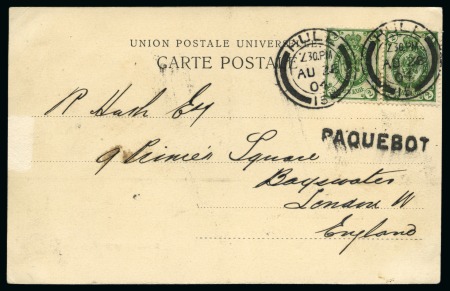 UNION POSTALE UNIVERSELLE
CARTE POSTALE
HULL
7.30.PM
AU 24
04
HULL
7.30.PM
04
PAQUEBOT
R Hash Esq
9 Prince's Square
Bayswater
London W
England